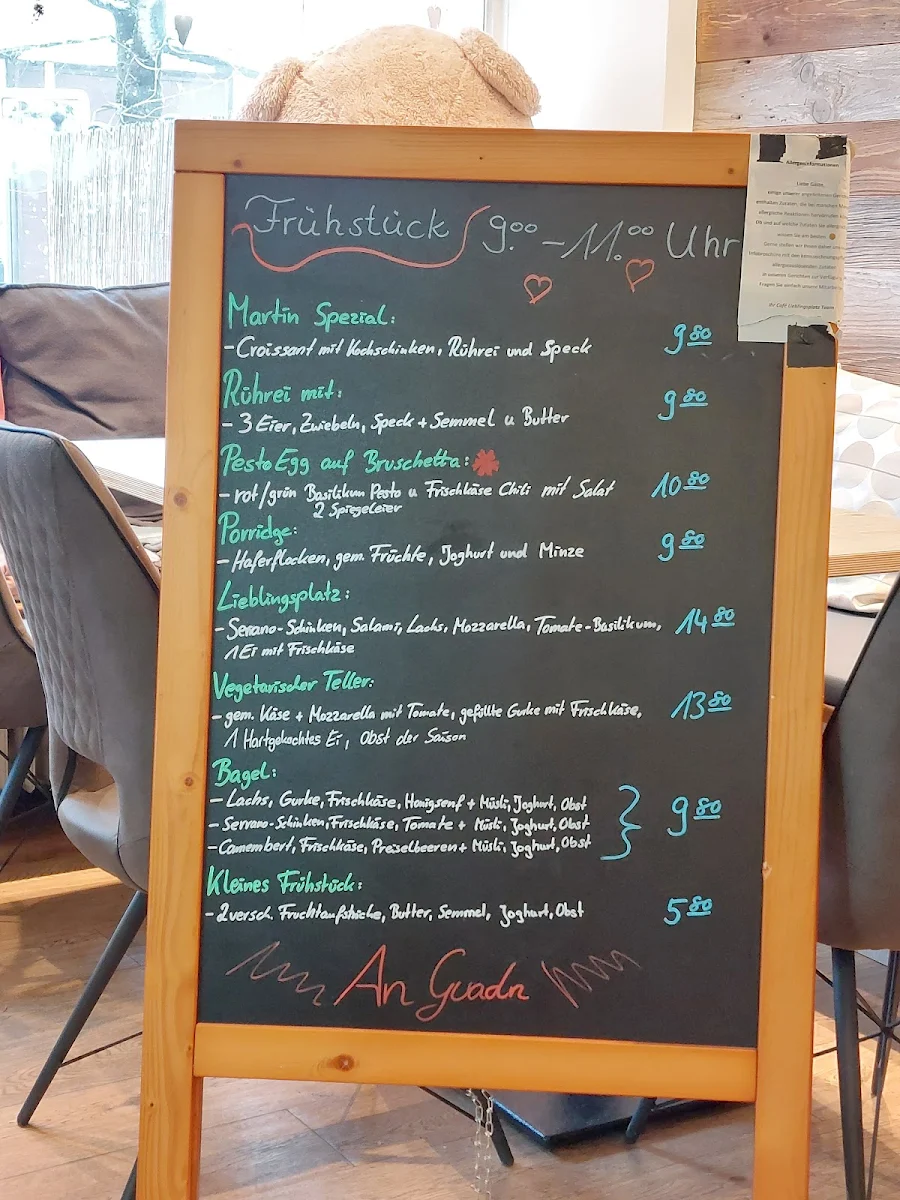 Frühstück 9.00 - 11.00 Uhr
Allergeninformationen
Liebe Gäste,
Martin Spezial:
- Croissant mit Kochschinken, Rührei und Speck 9 80
Rührei mit:
- 3 Eier, Zwiebeln, Speck + Semmel u Butter 9 80
Pesto Egg auf Bruschetta:
- rot/grün Basilikum Pesto u Frischkäse Chili mit Salat 10 80
2 Spiegeleier
Porridge:
- Haferflocken, gem. Früchte, Joghurt und Minze 9 80
Lieblingsplatz:
- Serrano-Schinken, Salami, Lachs, Mozzarella, Tomate-Basilikum, 14 80
1 Ei mit Frischkäse
Vegetarischer Teller:
- gem. Käse + Mozzarella mit Tomate, gefüllte Gurke mit Frischkäse, 13 80
1 Hartgekochtes Ei, Obst der Saison
Bagel:
- Lachs, Gurke, Frischkäse, Honigsenf + Müsli, Joghurt, Obst
- Serrano-Schinken, Frischkäse, Tomate + Müsli, Joghurt, Obst 9 80
- Camembert, Frischkäse, Preiselbeeren + Müsli, Joghurt, Obst
Kleines Frühstück:
- 2 versch. Fruchtaufstriche, Butter, Semmel, Joghurt, Obst 5 80
An Guadn